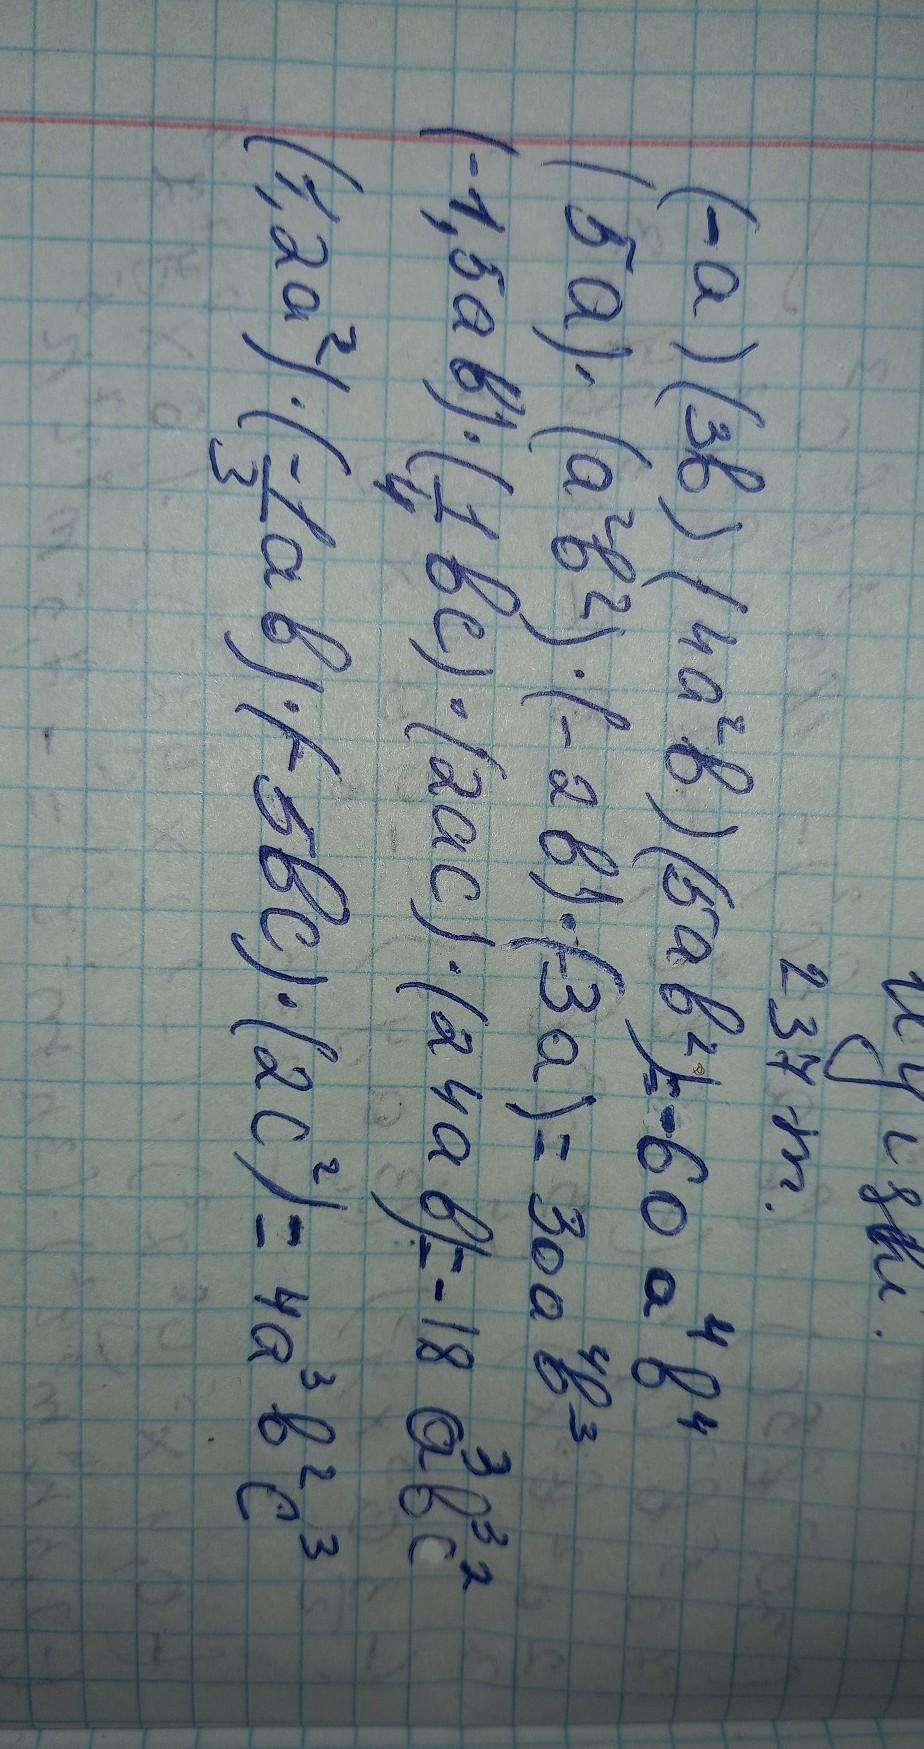 237 т.
(-a)(3b)(4a²b)(5ab²)=-60a⁴b⁴
(5a)·(a²b²)·(-2b)·(-3a)=30a⁴b³
(-1,5ab)·(1/4 bc)·(2ac)·(24ab)=-18a³b³c²
(1,2a²)·(-1/3 ab)·(-5bc)·(2c²)=4a³b²c³